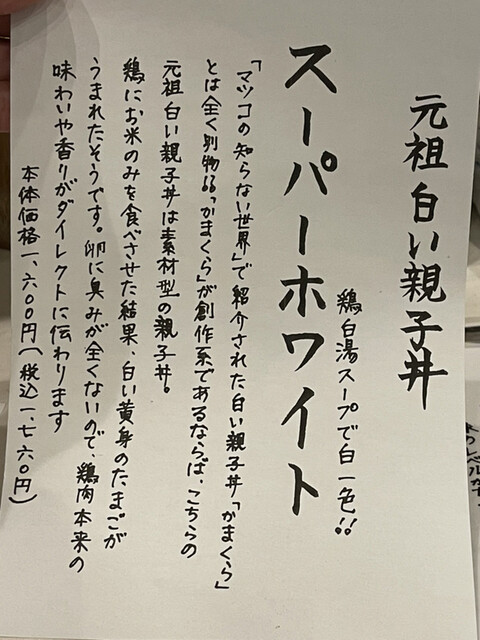 元祖 白い親子丼
鶏白湯スープで白一色!!
スーパーホワイト
「マツコの知らない世界」で紹介された白い親子丼「かまくら」
とは全く別物!!"かまくら"が創作系であるならば、こちらの
元祖 白い親子丼は素材型の親子丼。
鶏にお米のみを食べさせた結果、白い黄身のたまごが
うまれたそうです。卵に臭みが全くないので、鶏肉本来の
味わいや香りがダイレクトに伝わります
本体価格一、六〇〇円(税込一、七六〇円)